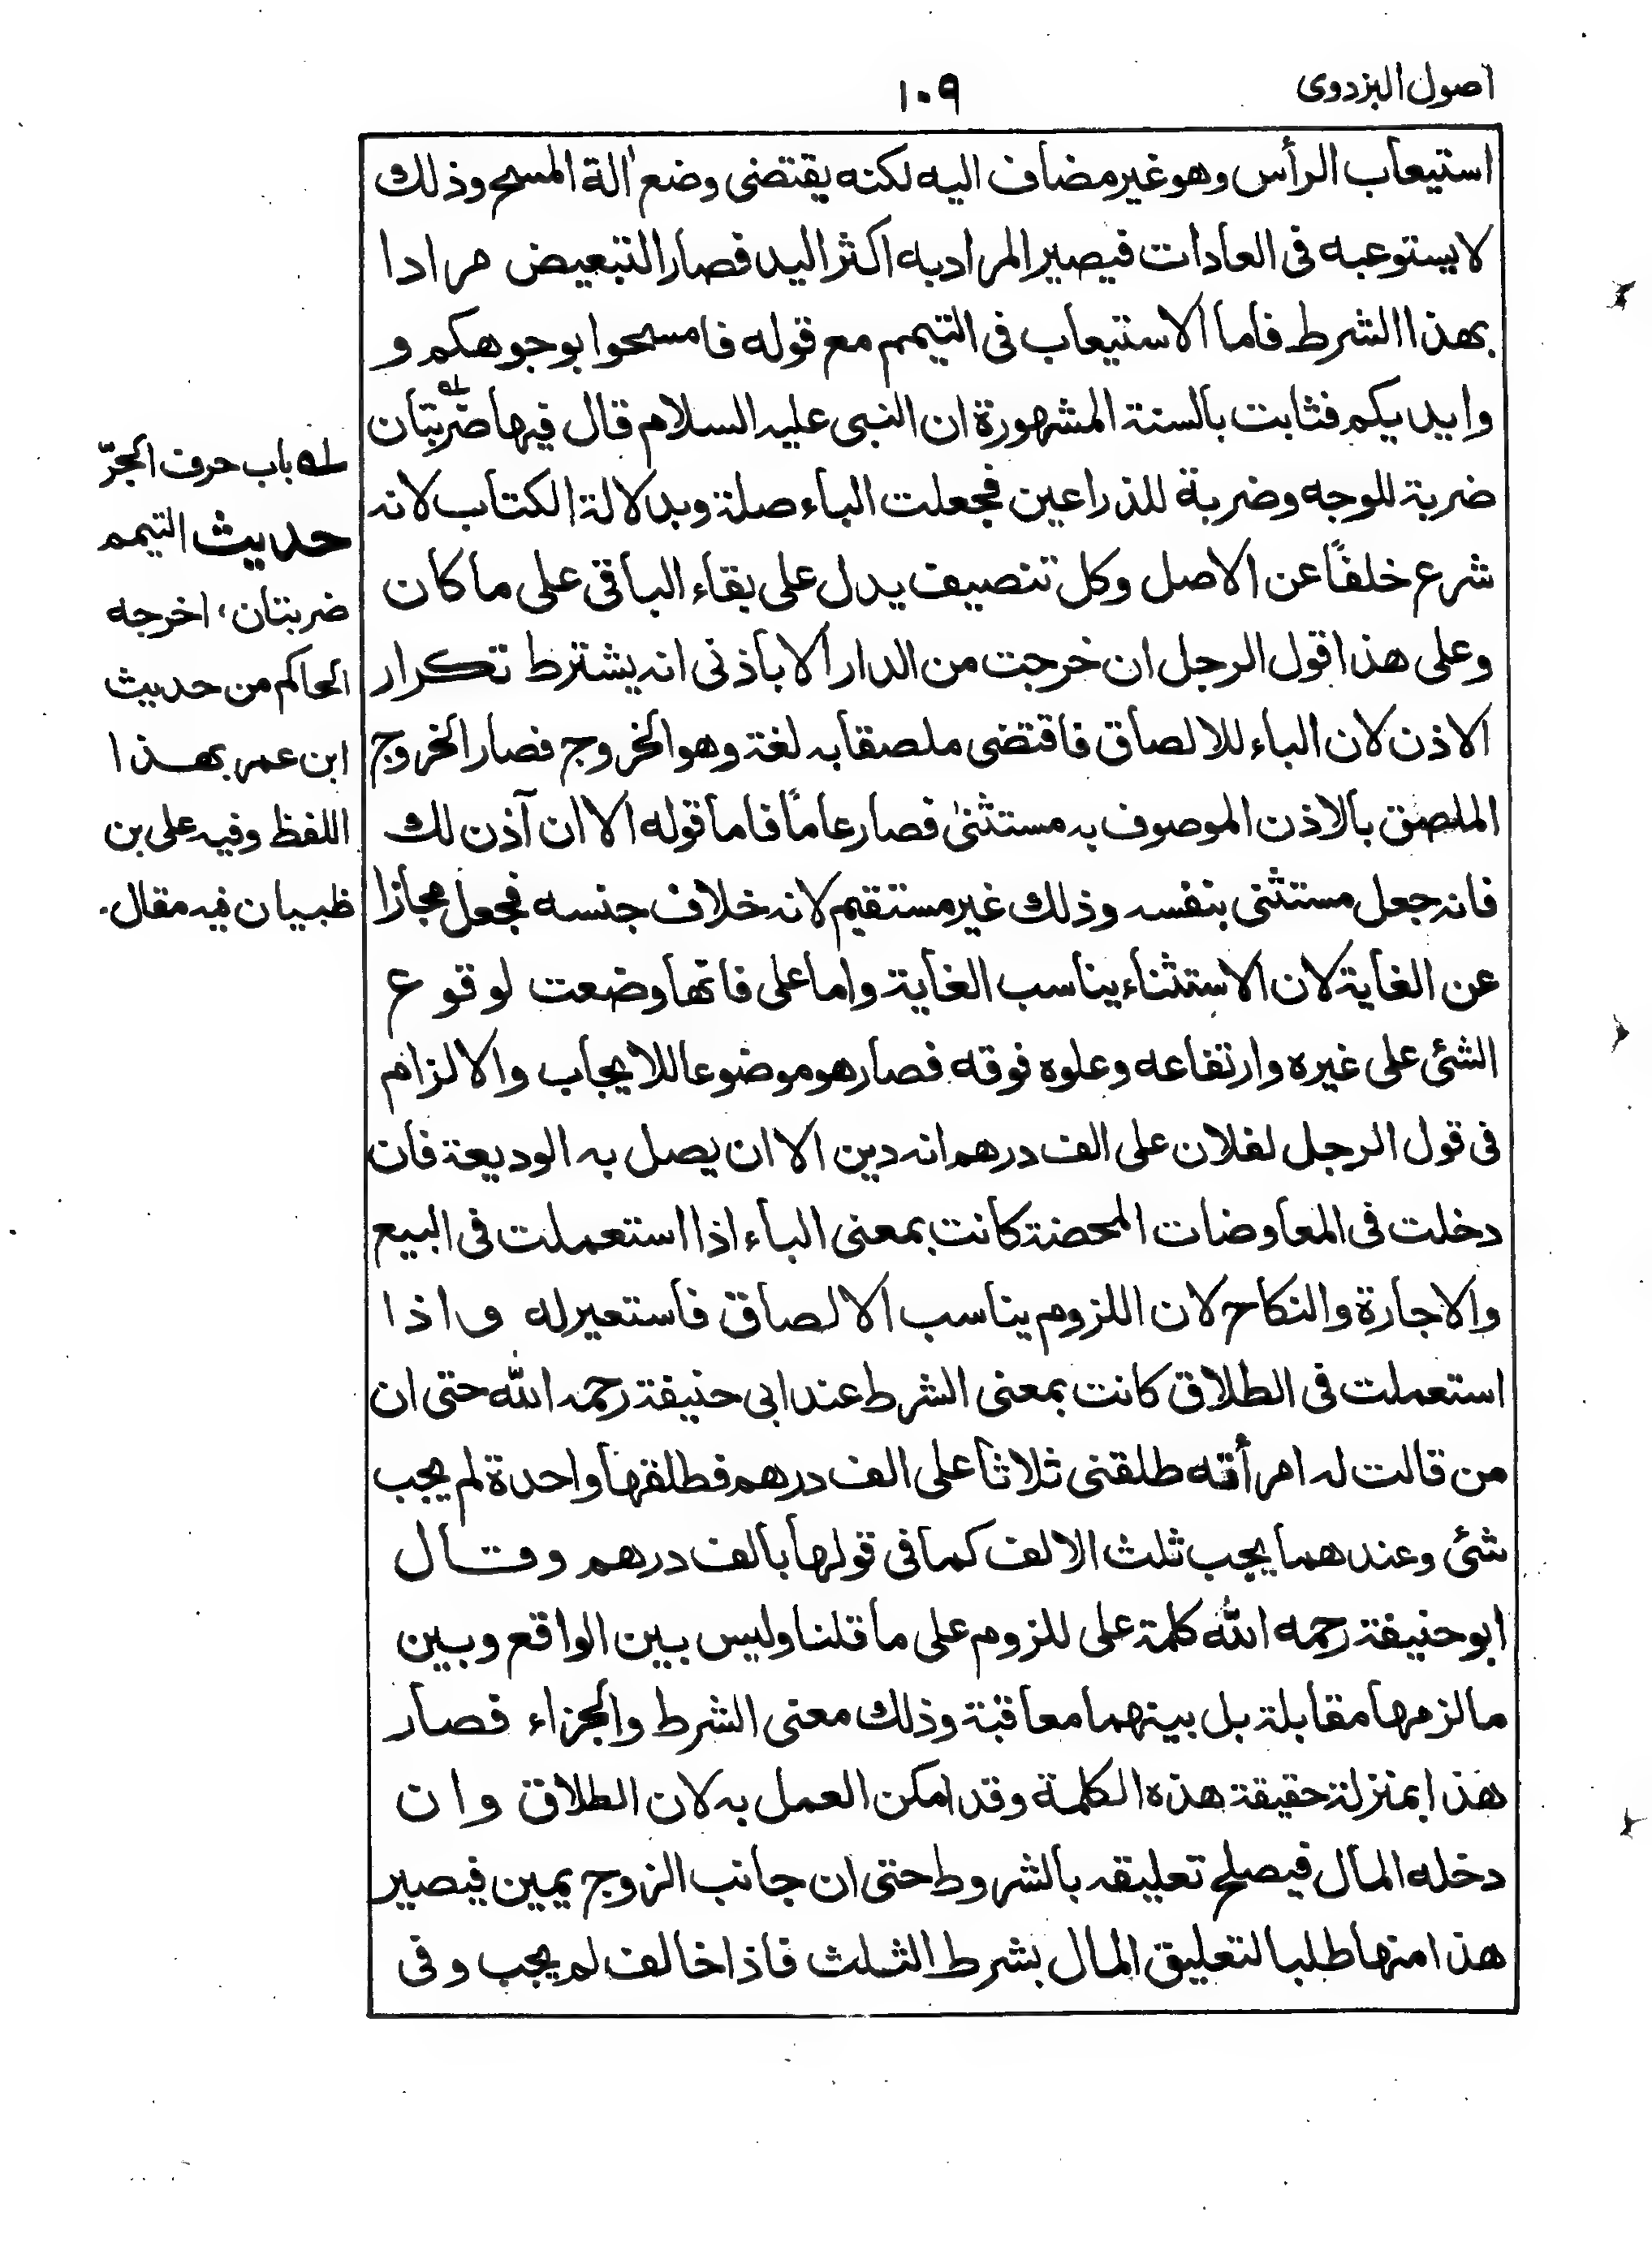 اصول البزدوى
١٠٩
استيعاب الرأس وهو غير مضاف اليه لكنه يقتضى وضع اٰلة المسح وذلك
لا يستوعبه فى العادات فيصير المراد به اكثر اليد فصار التبعيض مرادا
بهذا الشرط فاما الاستيعاب فى التيمم مع قوله فامسحوا بوجوهكم و
وايديكم فثابت بالسنة المشهورة ان النبى عليه السلام قال فيها ضربتان
ضربة للوجه وضربة للذراعين فجعلت الباء صلة وبدلالة الكتاب لانه
شرع خلفًا عن الاصل وكل تنصيف يدل على بقاء الباقى على ما كان
وعلى هذا قول الرجل ان خرجت من الدار الا باذنى انه يشترط تكرار
الاذن لان الباء للالصاق فاقتضى ملصقا به لغة وهو الخروج فصار الخروج
الملصق بالاذن الموصوف به مستثنىٰ فصار عامًا فاما قوله الا ان آذن لك
فانه جعل مستثنى بنفسه وذلك غير مستقيم لانه خلاف جنسه فجعل مجازا
عن الغاية لان الاستثناء يناسب الغاية واما على فانها وضعت لوقوع
الشئ على غيره وارتفاعه وعلوه فوقه فصار هو موضوعا للايجاب والالزام
فى قول الرجل لفلان على الف درهم انه دين الا ان يصل به الوديعة فان
دخلت فى المعاوضات المحضة كانت بمعنى الباء اذا استعملت فى البيع
والاجارة والنكاح لان اللزوم يناسب الالصاق فاستعير له واذا
استعملت فى الطلاق كانت بمعنى الشرط عند ابى حنيفة رحمه الله حتى ان
من قالت له امرأته طلقنى ثلاثا على الف درهم فطلقها واحدة لم يجب
شئ وعندهما يجب ثلث الالف كما فى قولها بالف درهم وقال
ابو حنيفة رحمه الله كلمة على للزوم على ما قلنا وليس بين الواقع وبين
ما لزمها مقابلة بل بينهما معاقبة وذلك معنى الشرط والجزاء فصار
هذا بمنزلة حقيقة هذه الكلمة وقد امكن العمل به لان الطلاق وان
دخله المال فيصلح تعليقه بالشروط حتى ان جانب الزوج يمين فيصير
هذا منها طلبا لتعليق المال بشرط الثلث فاذا خالف لم يجب وفى
لـه باب حرف الجرّ
حديث التيمم
ضربتان، اخرجه
الحاكم من حديث
ابن عمر بهذا
اللفظ وفيه على بن
ظبيان فيه مقال.